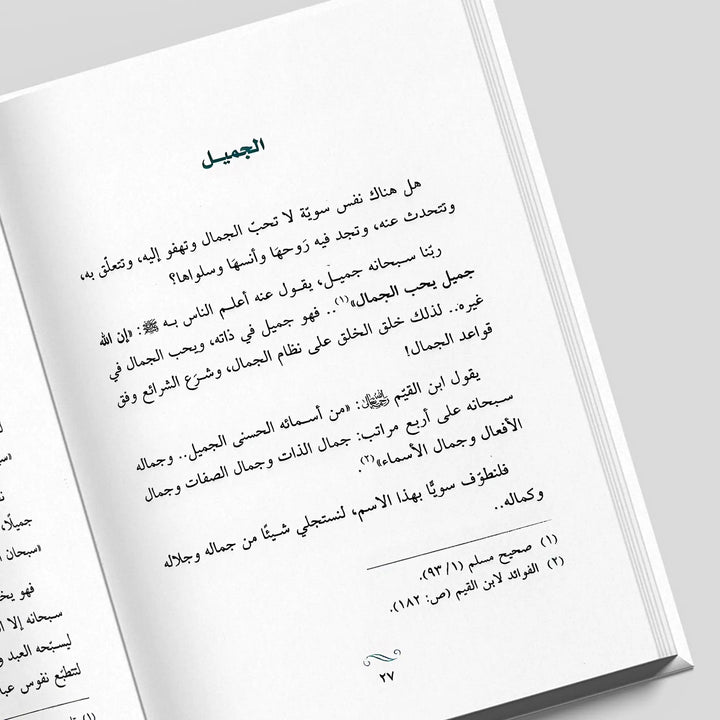 الجميـل
هل هناك نفس سويّة لا تحبّ الجمال وتهفو إليه، وتتعلّق به،
وتتحدث عنه، وتجد فيه رَوحهَا وأنسهَا وسلواها؟
ربّنا سبحانه جميـل، يقـول عنه أعلـم الناس بـه ﷺ: «إن الله
جميل يحب الجمال»(١).. فهو جميل في ذاته، ويحب الجمال في
غيره.. لذلك خلق الخلق على نظام الجمال، وشرَع الشرائع وفق
قواعد الجمال!
يقول ابن القيّم رحمه الله: «من أسمائه الحسنى الجميل.. وجماله
سبحانه على أربع مراتب: جمال الذات وجمال الصفات وجمال
الأفعال وجمال الأسماء»(٢).
فلنطوّف سويًّا بهذا الاسم، لنستجلي شيئًا من جماله وجلاله
وكماله..
(١) صحيح مسلم (١/ ٩٣).
(٢) الفوائد لابن القيم (ص: ١٨٢).
٢٧
جميلًا،
«سبحان ا
فهو يخ
سبحانه إلا ا
ليسبّحه العبد و
لتتطبّع نفوس عبا